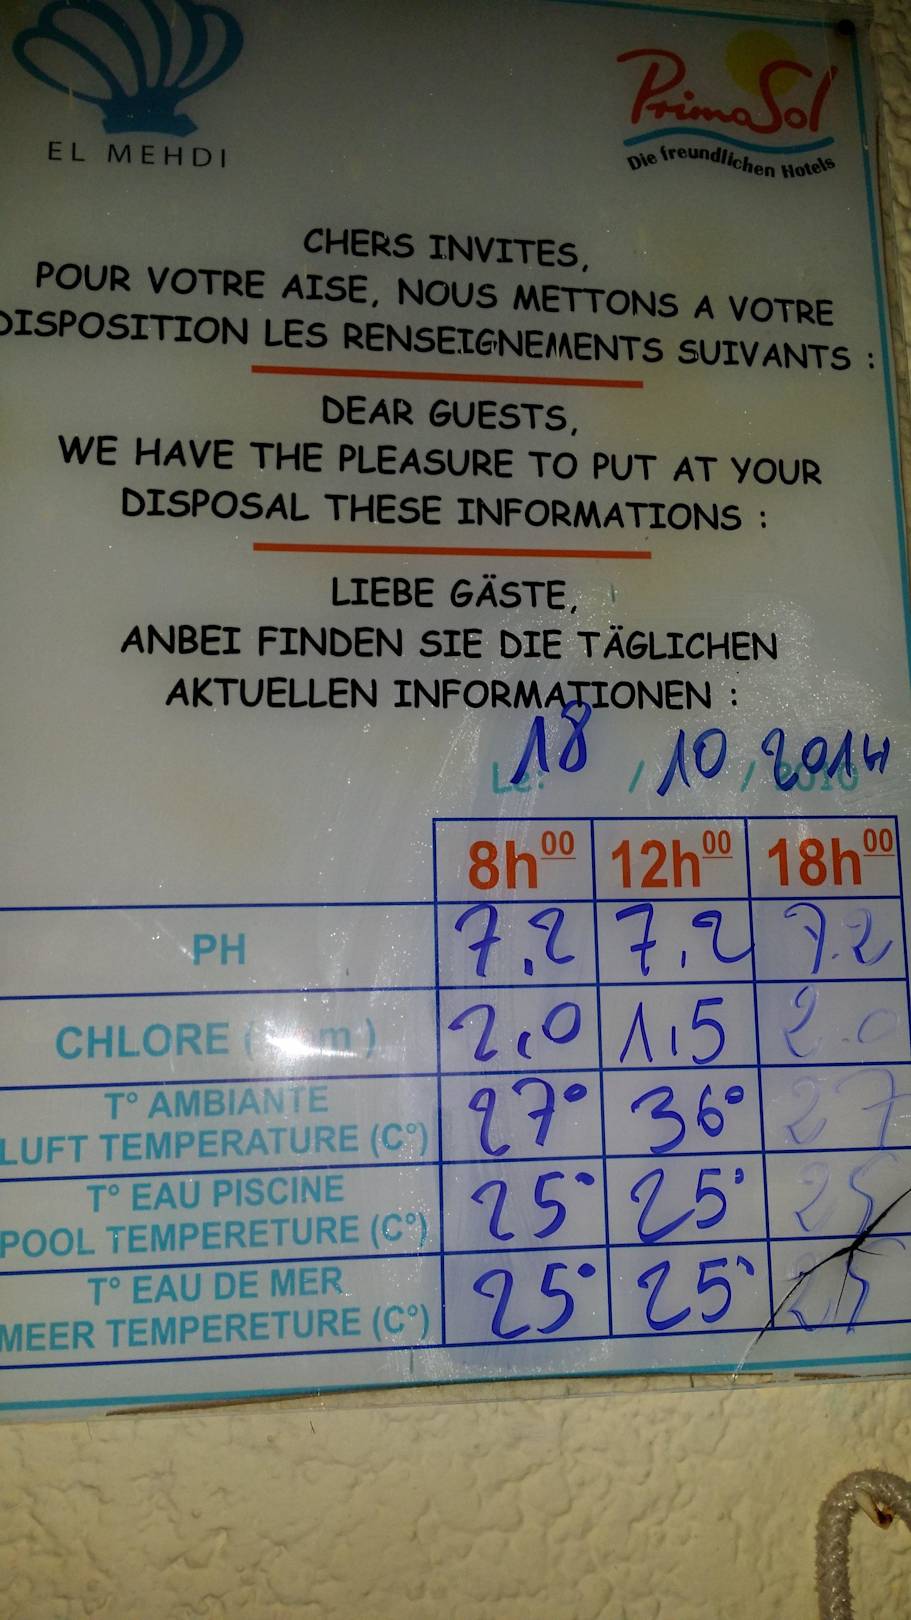 EL MEHDI
PrimaSol
Die freundlichen Hotels
CHERS INVITES,
POUR VOTRE AISE, NOUS METTONS A VOTRE
DISPOSITION LES RENSEIGNEMENTS SUIVANTS :
DEAR GUESTS,
WE HAVE THE PLEASURE TO PUT AT YOUR
DISPOSAL THESE INFORMATIONS :
LIEBE GÄSTE,
ANBEI FINDEN SIE DIE TÄGLICHEN
AKTUELLEN INFORMATIONEN :
Le: 18 / 10 / 2014
8h00 12h00 18h00
PH 7,2 7,2 7.2
CHLORE 2,0 1,5 2.0
T° AMBIANTE
LUFT TEMPERATURE (C°) 27° 36° 27
T° EAU PISCINE
POOL TEMPERETURE (C°) 25° 25° 25
T° EAU DE MER
MEER TEMPERETURE (C°) 25° 25° 25